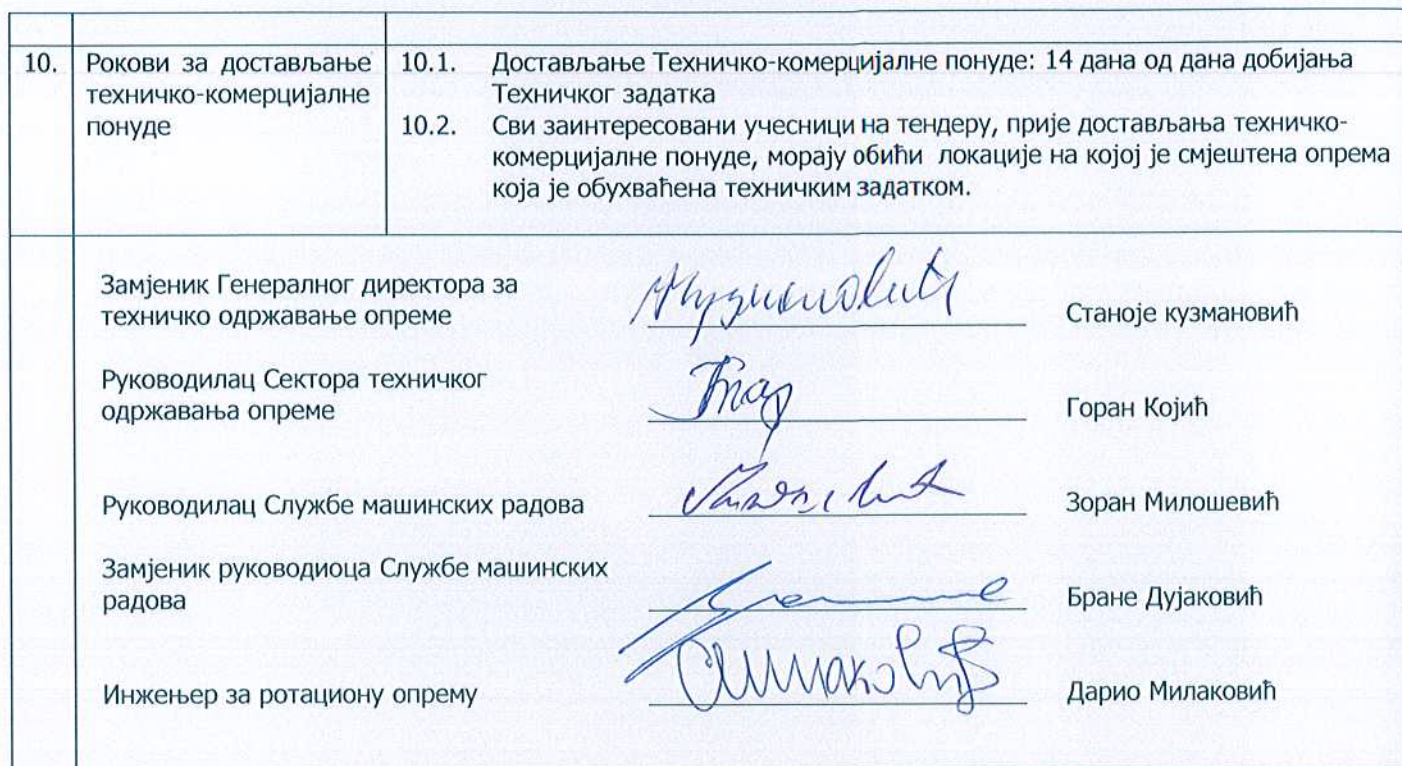 10. Рокови за достављање
техничко-комерцијалне
понуде
10.1. Достављање Техничко-комерцијалне понуде: 14 дана од дана добијања
Техничког задатка
10.2. Сви заинтересовани учесници на тендеру, прије достављања техничко-
комерцијалне понуде, морају обићи локације на којој је смјештена опрема
која је обухваћена техничким задатком.
Замјеник Генералног директора за
техничко одржавање опреме
Станоје кузмановић
Руководилац Сектора техничког
одржавања опреме
Горан Којић
Руководилац Службе машинских радова
Зоран Милошевић
Замјеник руководиоца Службе машинских
радова
Бране Дујаковић
Инжењер за ротациону опрему
Дарио Милаковић